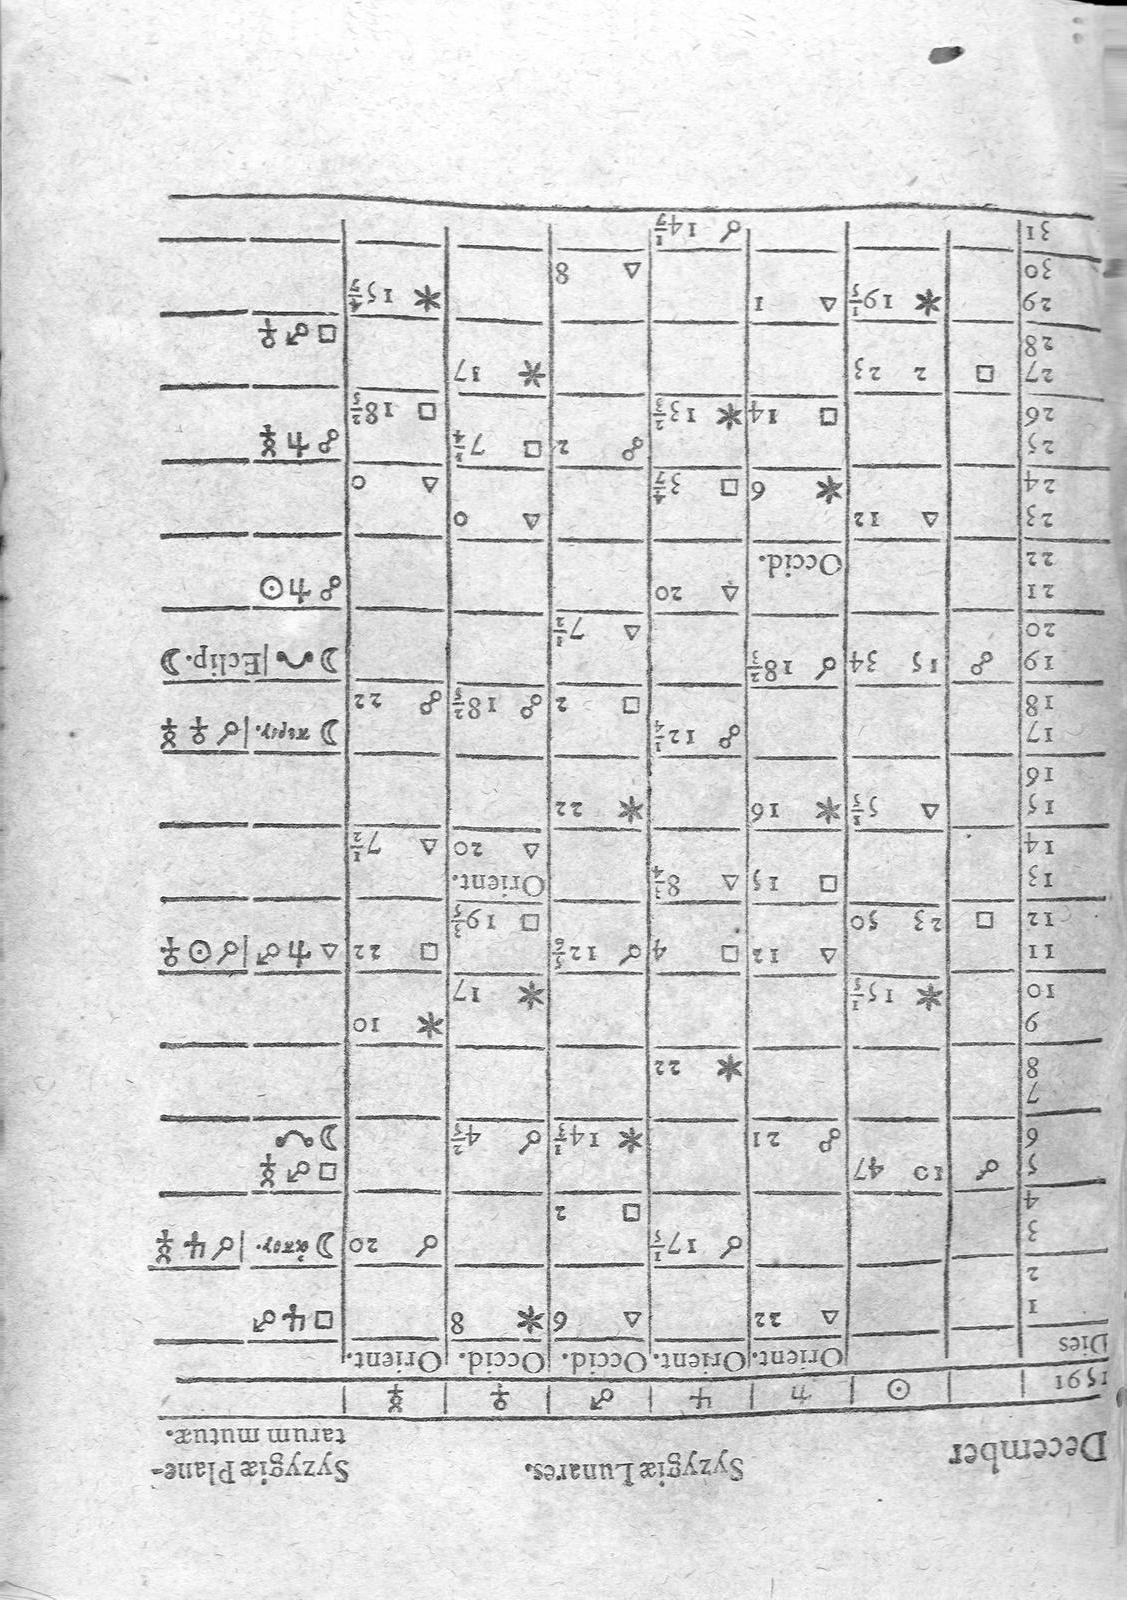 December Syzygiæ Lunares. Syzygiæ Plane-
tarum mutuæ.
1591 ☉ ♄ ♃ ♂ ♀ ☿
Dies Orient. Orient. Occid. Occid. Orient.
1 △ 22 △ 6 ✶ 8 □ ♃ ♂
2
3 ☌ 17 1/5 ☌ 20 ☽ ἀπογ. | ☌ ♃ ☿
4 □ 2
5 ☌ 10 47 □ ♂ ☿
6 ☍ 21 ✶ 14 1/3 ☌ 4 2/5 ☽
7
8 ✶ 22
9 ✶ 10
10 ✶ 15 1/5 ✶ 17
11 △ 12 □ 4 ☌ 12 5/6 □ 22 △ ♄ ♂ | ☌ ☉ ♀
12 □ 23 50 □ 19 3/5
13 □ 15 △ 8 3/4 Orient.
14 △ 20 △ 7 1/2
15 △ 5 1/5 ✶ 16 ✶ 22
16
17 ☍ 12 1/4 ☽ περιγ. | ☌ ♀ ☿
18 □ 2 ☍ 18 2/5 ☍ 22
19 ☍ 15 34 ☌ 18 2/3 ☽ | Eclip. ☽
20 △ 7 1/2
21 △ 20 ☍ ♄ ☉
22 Occid.
23 △ 12 △ 0
24 ✶ 6 □ 3 4/7 △ 0
25 ☍ 2 □ 7 1/4 ☍ ♄ ☿
26 □ 14 ✶ 13 2/3 □ 18 2/5
27 □ 2 23 ✶ 17
28 □ ♂ ♀
29 ✶ 19 1/5 △ 1 ✶ 15 4/5
30 △ 8
31 ☌ 14 1/7